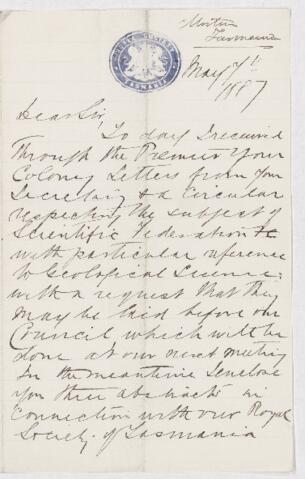 ROYAL SOCIETY
TASMANIA
Tasmania
May 7th
1887
Dear Sir,
To day I received
Through the Premier Your
Colony Letters from your
Secretary & a Circular
respecting the subject of
Scientific Federation &c
with particular reference
to Geological Science:
with a request that they
may be laid before our
Council which will be
done at our next meeting
In the meantime I enclose
you three abstracts in
connection with our Royal
Society of Tasmania